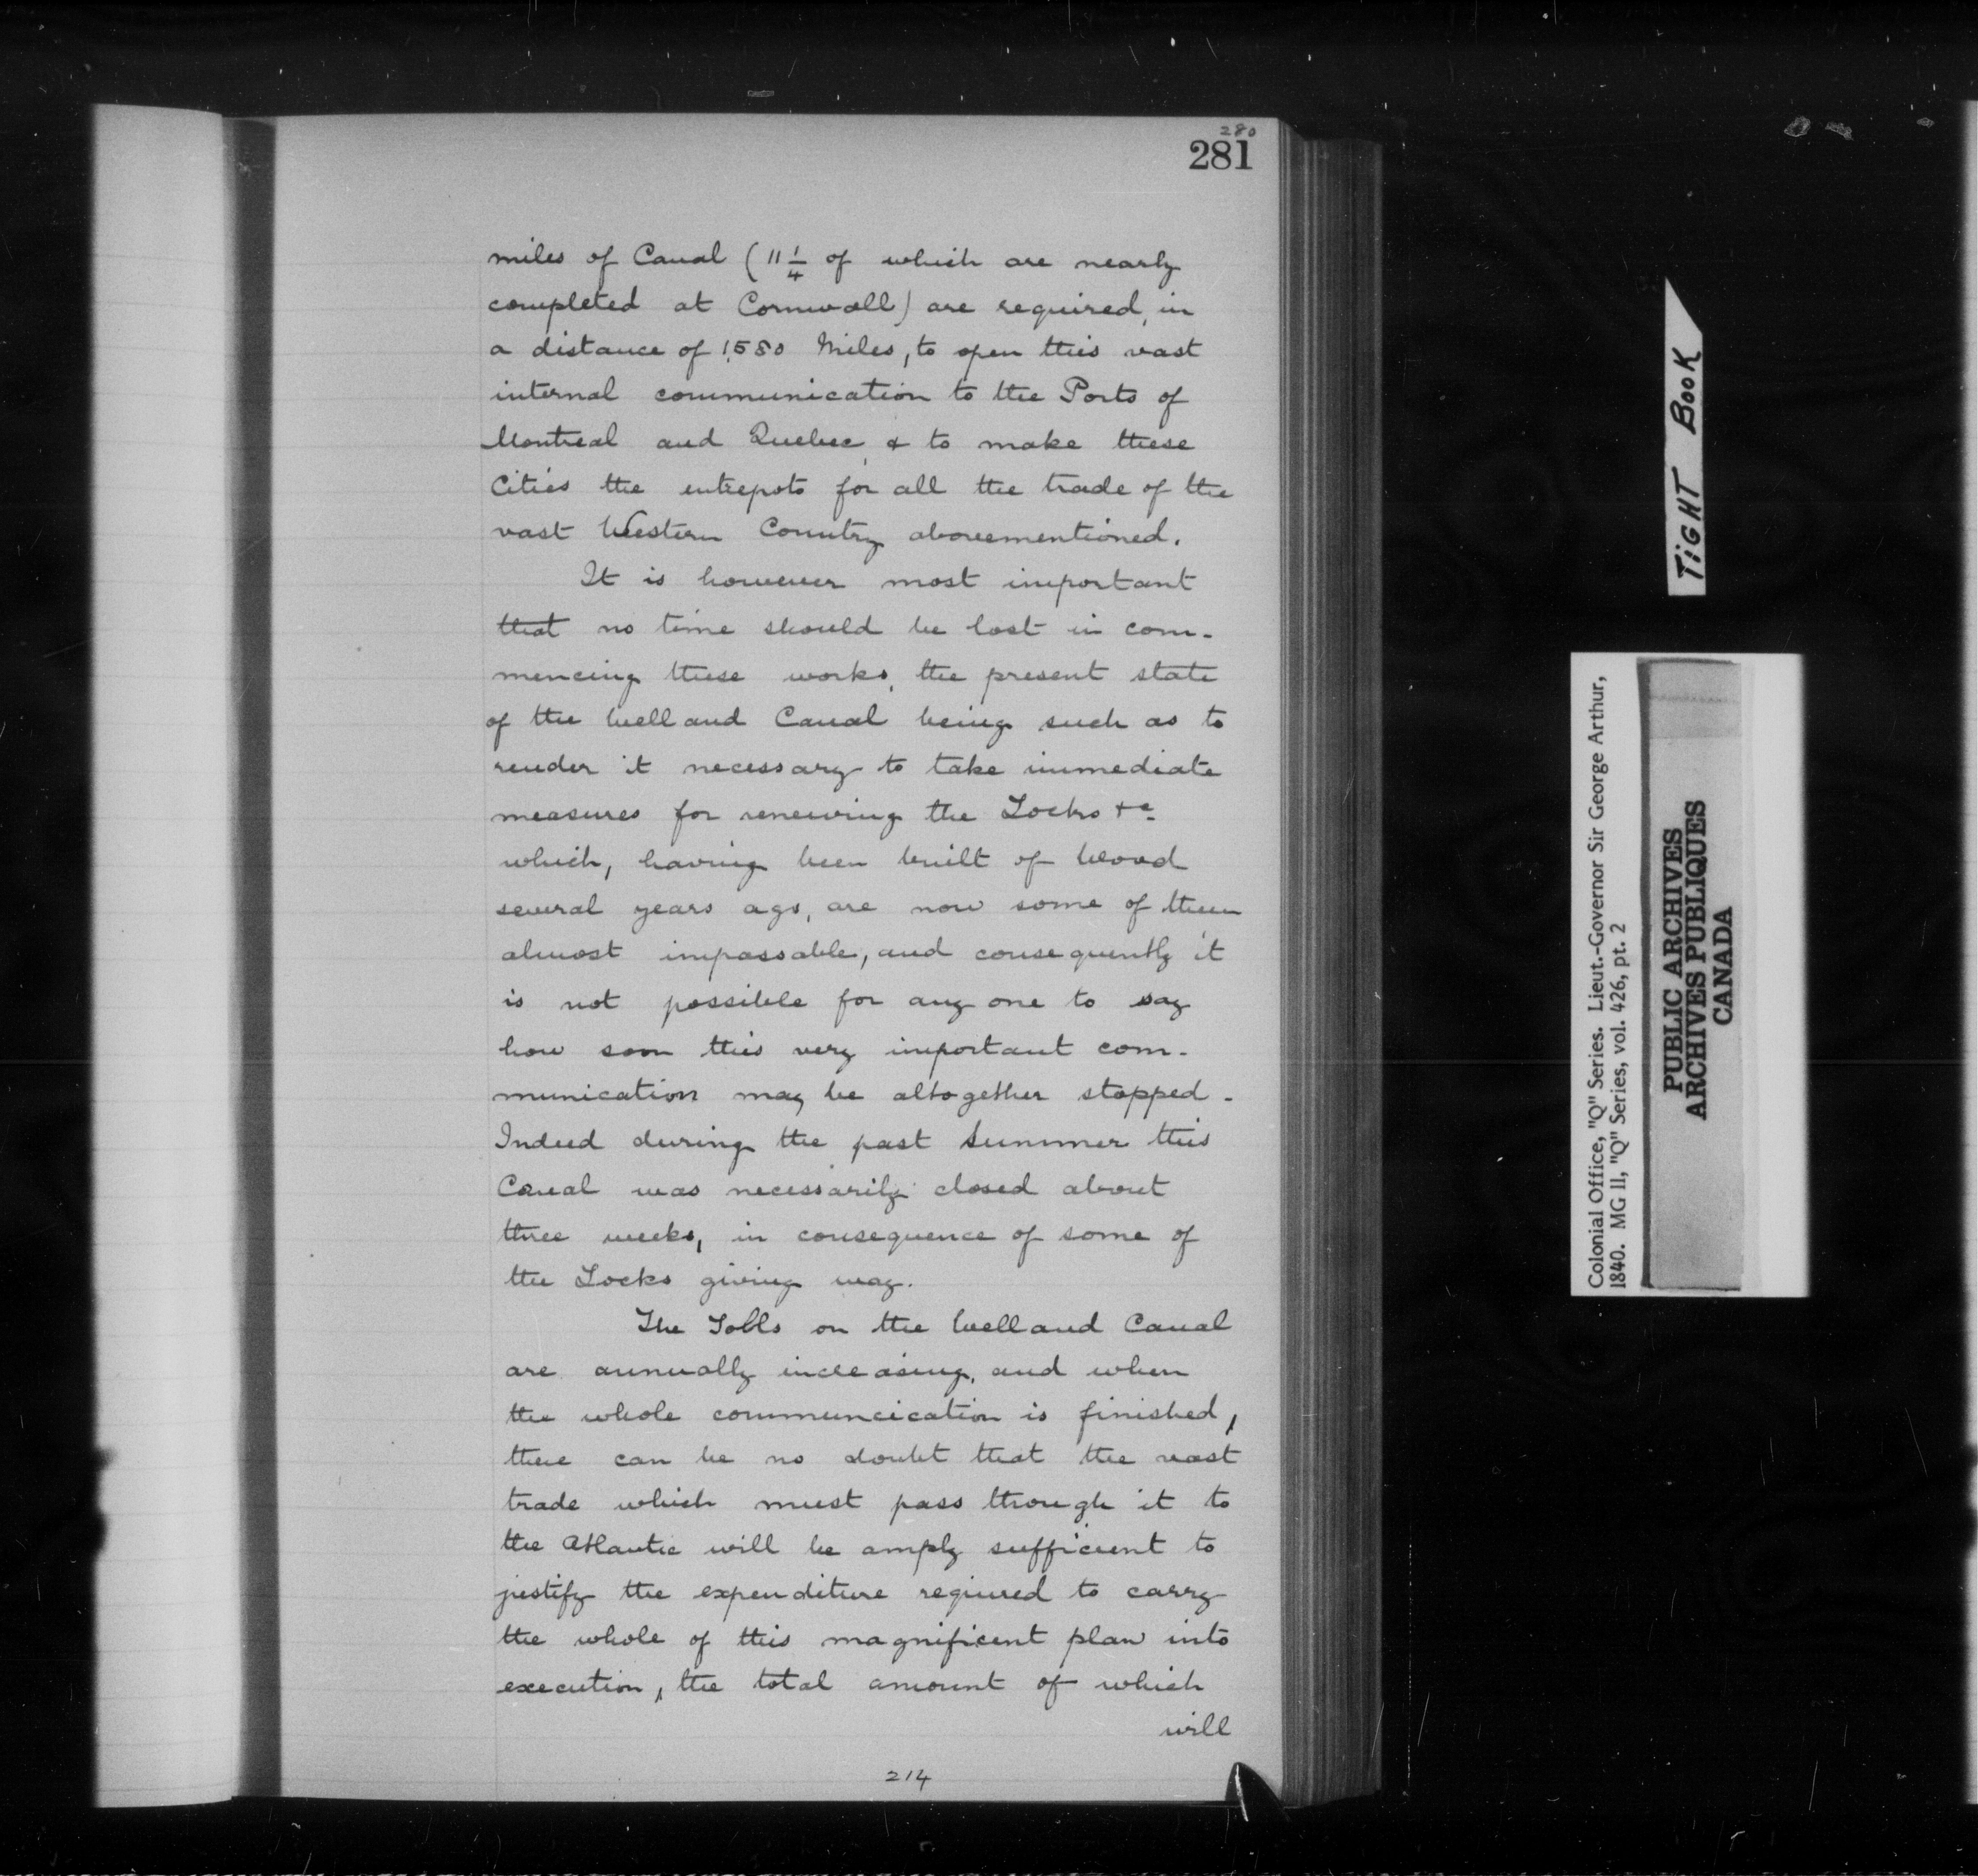 280
281
miles of Canal (11 1/4 of which are nearly
completed at Cornwall) are required, in
a distance of 1,580 Miles, to open this vast
internal communication to the Ports of
Montreal and Quebec, & to make these
Cities the entrepots for all the trade of the
vast Western Country abovementioned.
It is however most important
that no time should be lost in com-
mencing these works, the present state
of the Welland Canal being such as to
render it necessary to take immediate
measures for renewing the Locks &c
which, having been built of Wood
several years ago, are now some of them
almost impassable, and consequently it
is not possible for any one to say
how soon this very important com-
munication may be altogether stopped.
Indeed during the past Summer this
Canal was necessarily closed about
three weeks, in consequence of some of
the Locks giving way.
The Tolls on the Welland Canal
are annually increasing, and when
the whole communcication is finished,
there can be no doubt that the vast
trade which must pass through it to
the Atlantic will be amply sufficient to
justify the expenditure required to carry
the whole of this magnificent plan into
execution, the total amount of which
will
214
TIGHT BOOK
Colonial Office, "Q" Series. Lieut.-Governor Sir George Arthur,
1840. MG 11, "Q" Series, vol. 426, pt. 2
PUBLIC ARCHIVES
ARCHIVES PUBLIQUES
CANADA